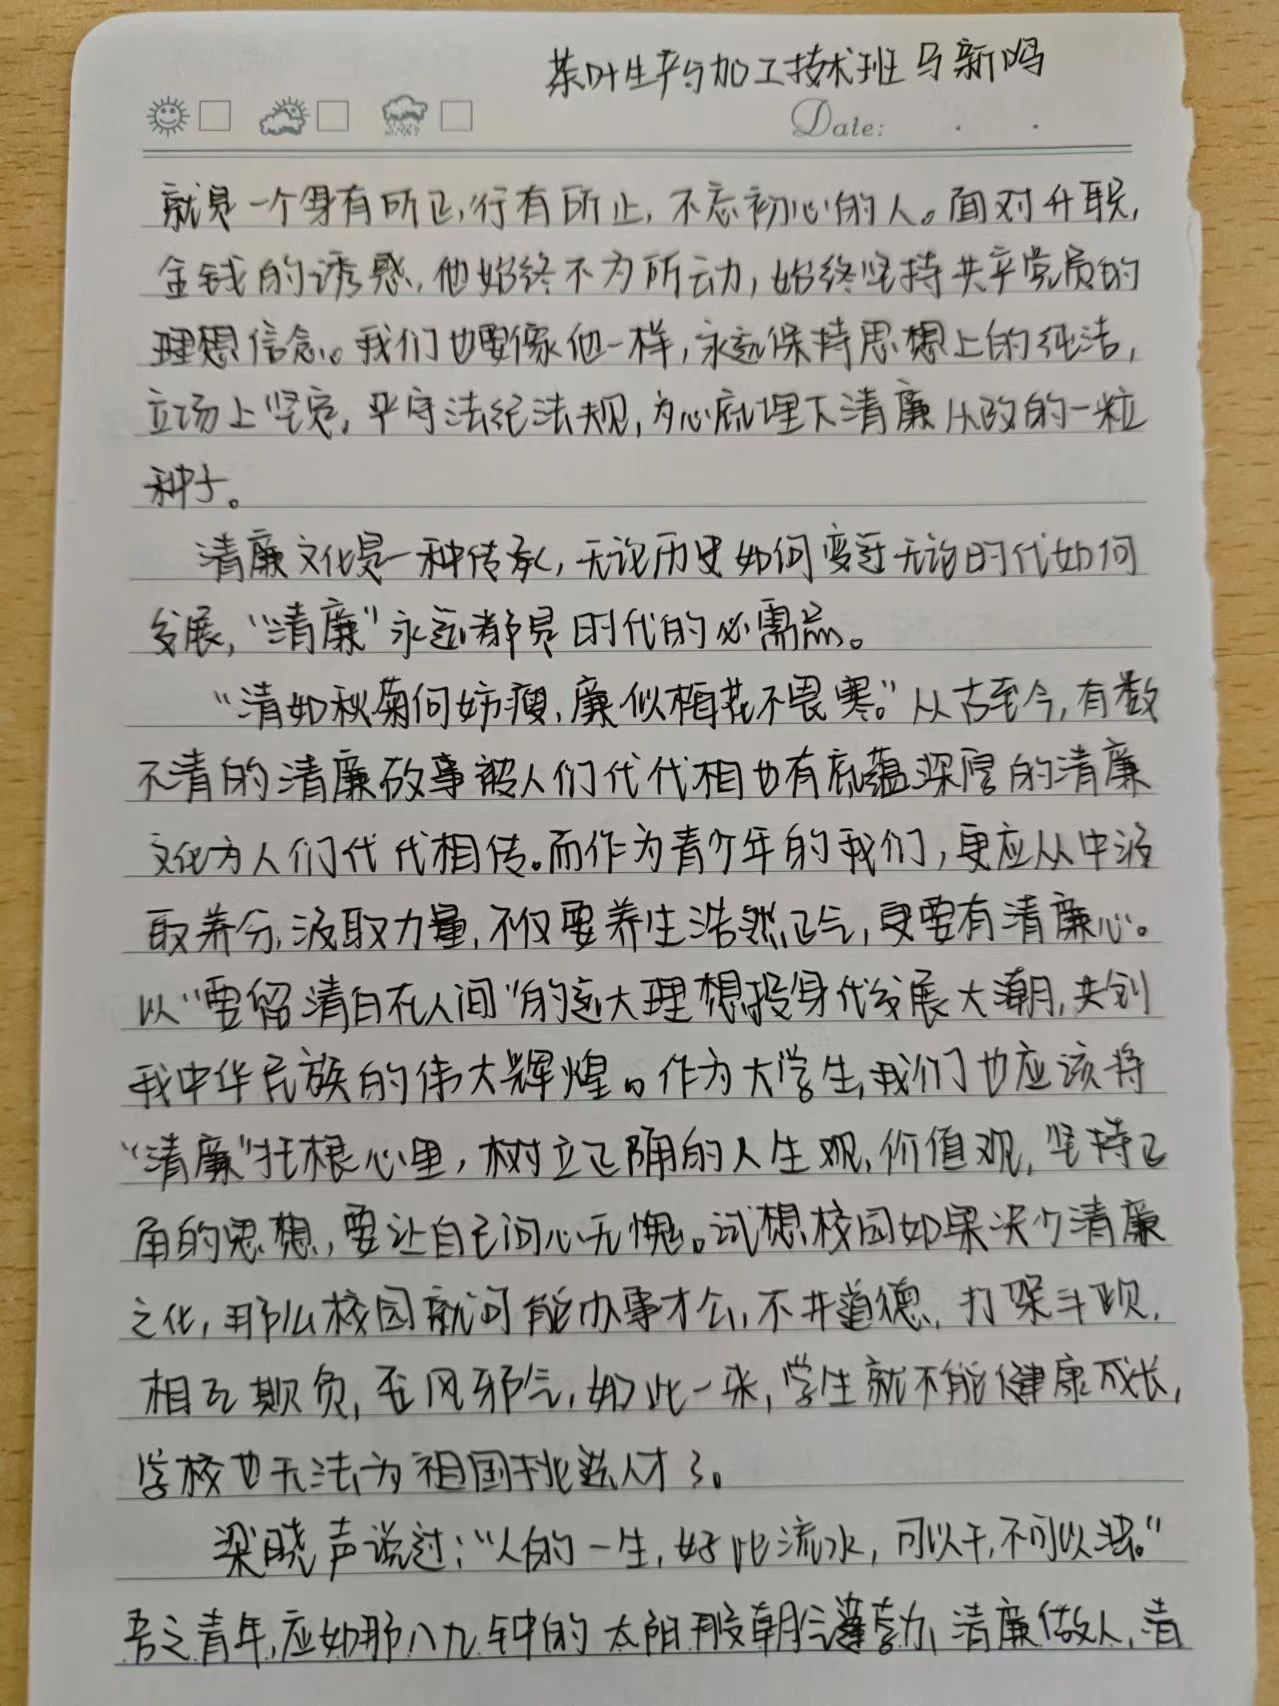 茶叶生产与加工技术班 马新
Date:
就是一个身有所正,行有所止,不忘初心的人。面对升职,
金钱的诱惑,他始终不为所动,始终坚持共产党员的
理想信念。我们也要像他一样,永远保持思想上的纯洁,
立场上坚定,平守法纪法规,为心底埋下清廉从政的一粒
种子。
清廉文化是一种传承,无论历史如何变迁无论时代如何
发展,“清廉”永远都是时代的必需品。
“清如秋菊何妨瘦,廉似梅花不畏寒。”从古至今,有数
不清的清廉故事被人们代代相也有底蕴深厚的清廉
文化为人们代代相传。而作为青少年的我们,更应从中汲
取养分,汲取力量,不仅要养生浩然正气,更要有清廉心。
以“要留清白在人间”的远大理想投身代发展大潮,共创
我中华民族的伟大辉煌。作为大学生,我们也应该将
“清廉”扎根心里,树立正确的人生观,价值观,坚持正
角的思想,要让自己问心无愧。试想校园如果决少清廉
之化,那么校园就可能办事才公,不井道德,打架斗殴,
相互欺负,歪风邪气,如此一来,学生就不能健康成长,
学校也无法为祖国挑选人才了。
梁晓声说过:“人的一生,好比流水,可以干,不可以浊。”
吾之青年,应如那八九钟的太阳般朝气蓬勃,清廉做人,清